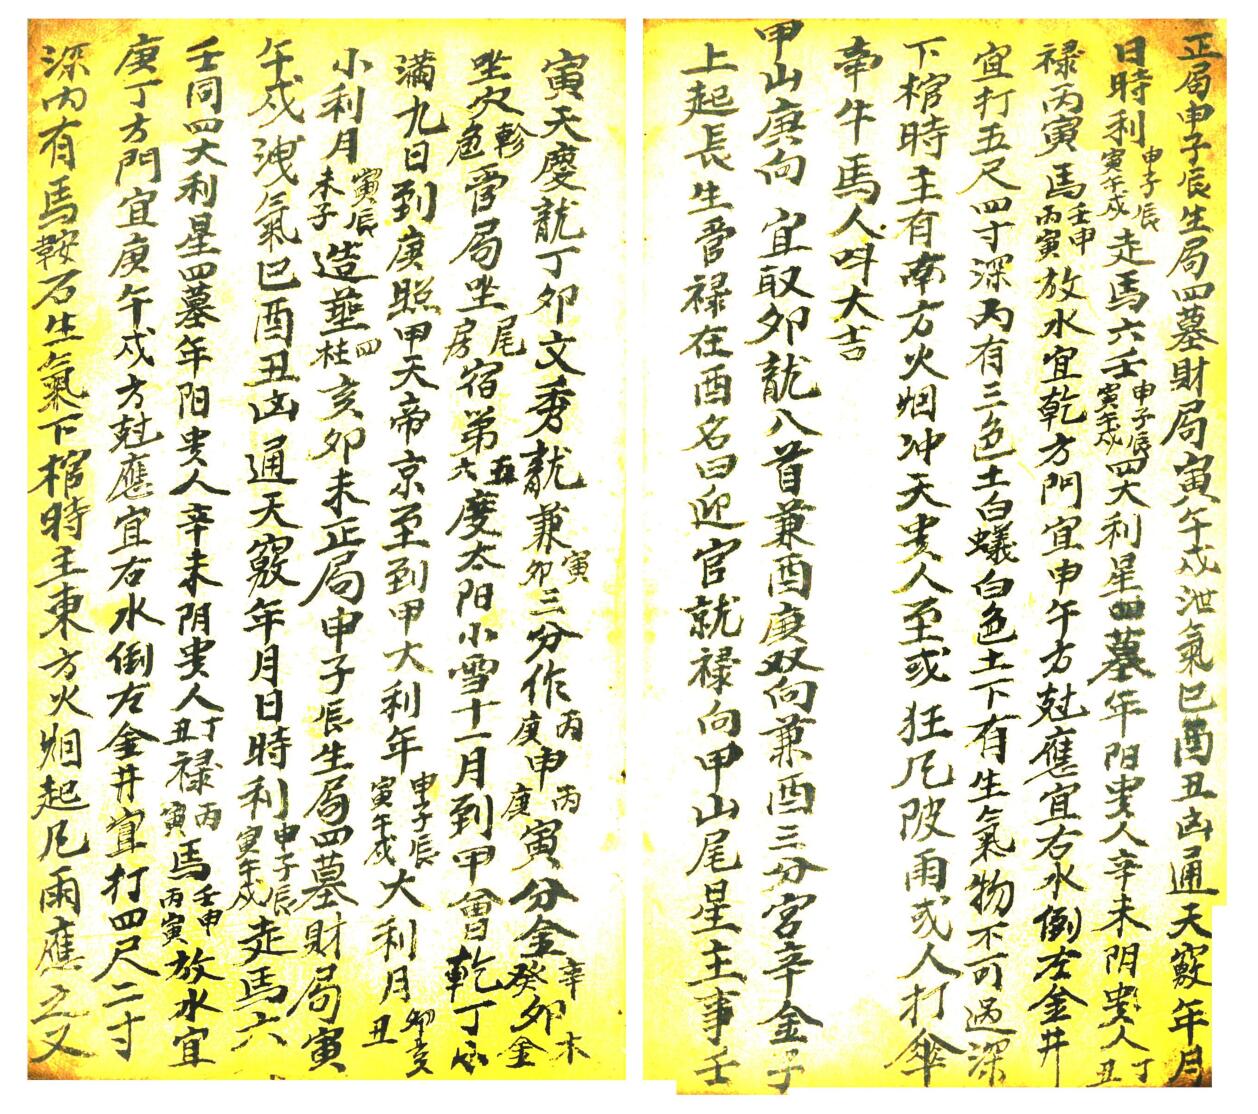 正局申子辰生局四墓財局寅午戍泄氣巳酉丑凶通天竅年月
日時利申子辰寅午戍走馬六壬申子辰寅午戍四大利星四墓年阳贵人辛未阴贵人丁丑
禄丙寅馬壬申丙寅放水宜乾方门宜申午方尅應宜右水倒左金井
宜打五尺四寸深内有三色土白蟻白色土下有生氣物不可過深
下棺時主有南方火烟冲天贵人至或狂凡陂雨或人打傘
牵牛馬人呌大吉
甲山庚向 宜取夘龍八首兼酉庚双向兼酉三分宮辛金子
上起長生晋禄在酉名曰迎官就禄向甲山尾星主事壬
寅天慶龍丁夘文秀龍兼寅夘三分作丙庚申丙庚寅分金辛癸夘木金
坐穴軫危晋局坐尾房宿第五六度太阳小雪十一月到甲會乾丁
满九日到庚照甲天帝京至到甲大利年申子辰寅午戍大利月丑
小利月寅辰未子造塟四柱亥夘未正局申子辰生局四墓財局寅
午戍洩氣巳酉丑凶通天竅年月日時利申子辰寅午戍走馬六
壬同四大利星四墓年阳贵人辛未阴贵人丁丑禄丙寅馬壬申丙寅放水宜
庚丁方門宜庚午戍方尅應宜右水倒左金井宜打四尺二寸
深内有馬鞍石生氣下棺時主東方火烟起凡雨應之又